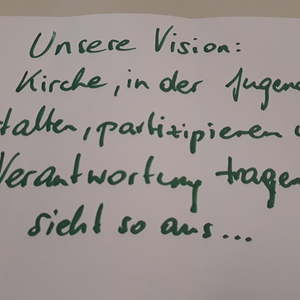 Unsere Vision:
Kirche, in der Jugend
stalten, partizipieren
Verantwortung tragen
sieht so aus...